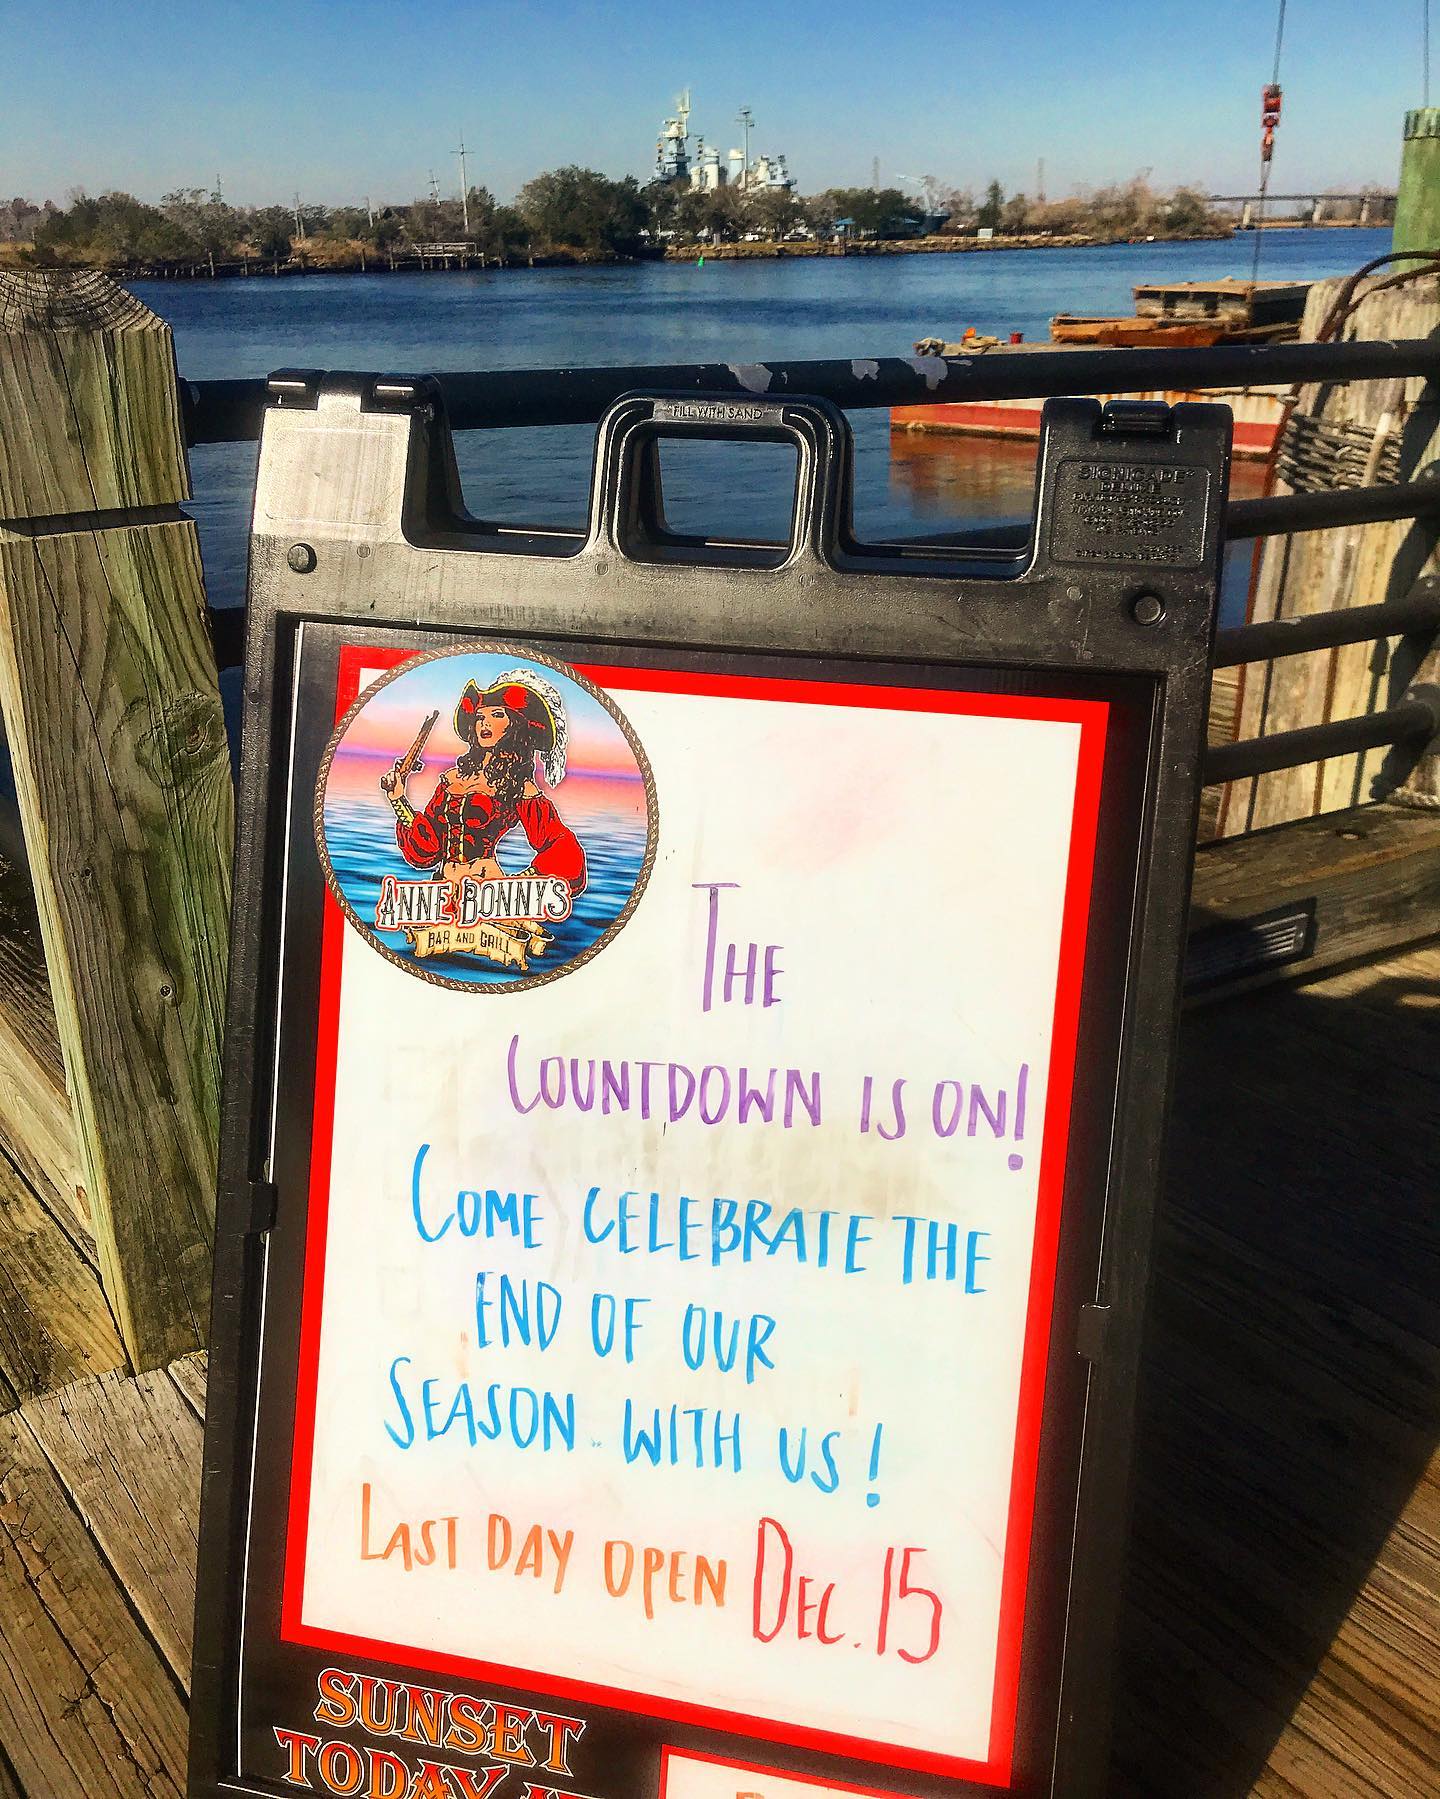 "FILL WITH SAND"
SIGNICADE
DELUXE
ANNE BONNY'S
BAR AND GRILL
THE
COUNTDOWN IS ON!
COME CELEBRATE THE
END OF OUR
SEASON WITH US!
LAST DAY OPEN DEC. 15
SUNSET
TODAY